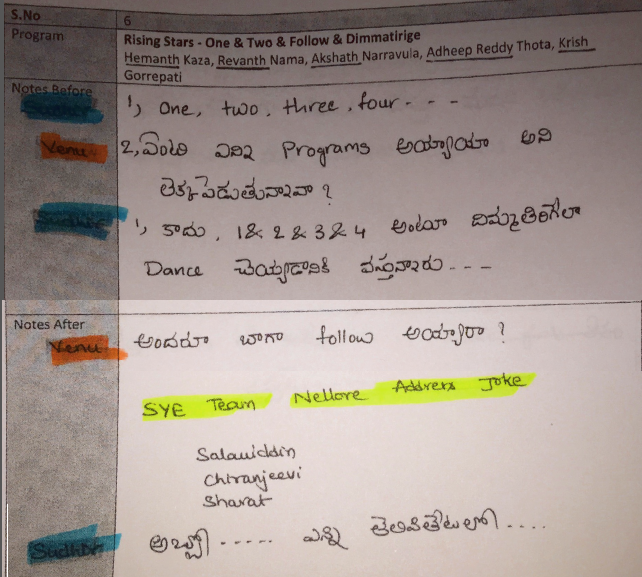 S.No 6
Program Rising Stars - One & Two & Follow & Dimmatirige
Hemanth Kaza, Revanth Nama, Akshath Narravula, Adheep Reddy Thota, Krish
Gorrepati
Notes Before
1, One, two, three, four - - -
Venu 2, ఏంటి ఎన్ని Programs అయ్యాయా అని
లెక్కపెడుతున్నావా ?
1, కాదు, 1 & 2 & 3 & 4 అంటూ దిమ్మతిరిగేలా
Dance చెయ్యడానికి వస్తున్నారు - - -
Notes After
Venu అందరూ బాగా follow అయ్యారా ?
SYE Team Nellore Address Joke
Salauiddin
Chiranjeevi
Sharat
Sudhir అబ్బో ----- ఎన్ని తెలివితేటలో ....